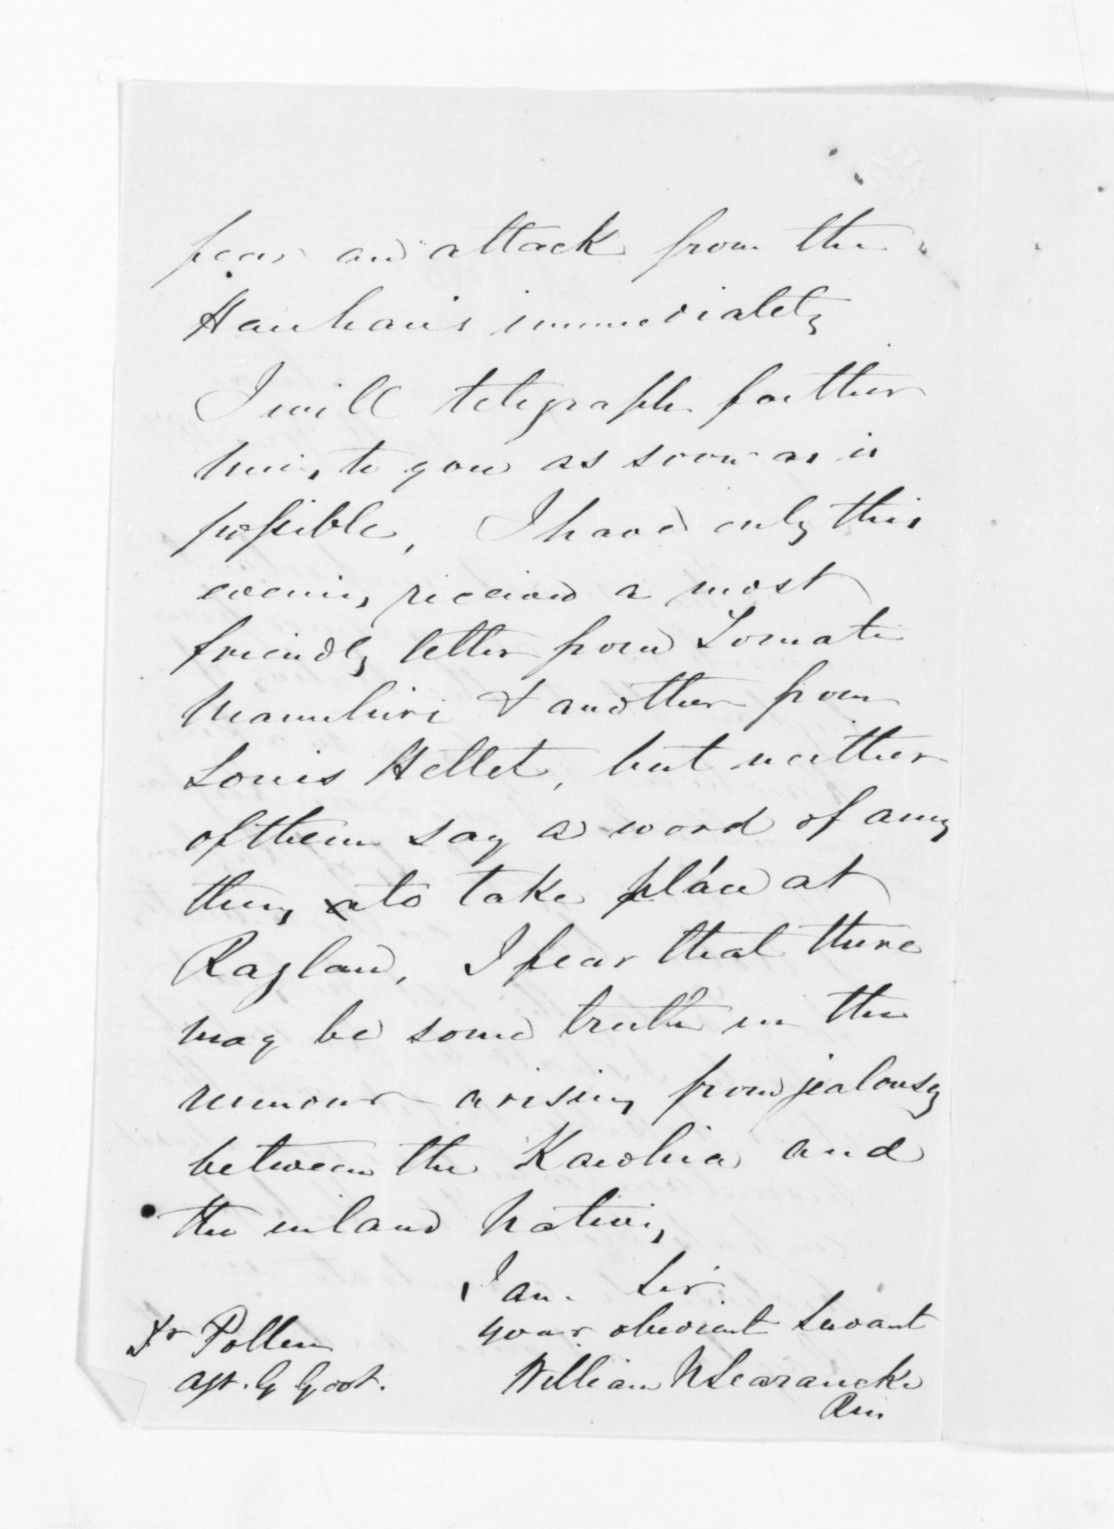 fear an attack from the
Hauhau's immediately
I will telegraph further
news to you as soon as is
possible, I have only this
evening received a most
friendly letter from
& another from
Louis Hettet, but neither
of them say a word of any
thing to take place at
Raglan, I fear that there
may be some truth in the
rumour arising from jealousy
between the Kawhia and
the inland Natives,
I am Sir
your obedient Servant
William N Searancke
RM
Dr Pollen
Agt. G Govt.